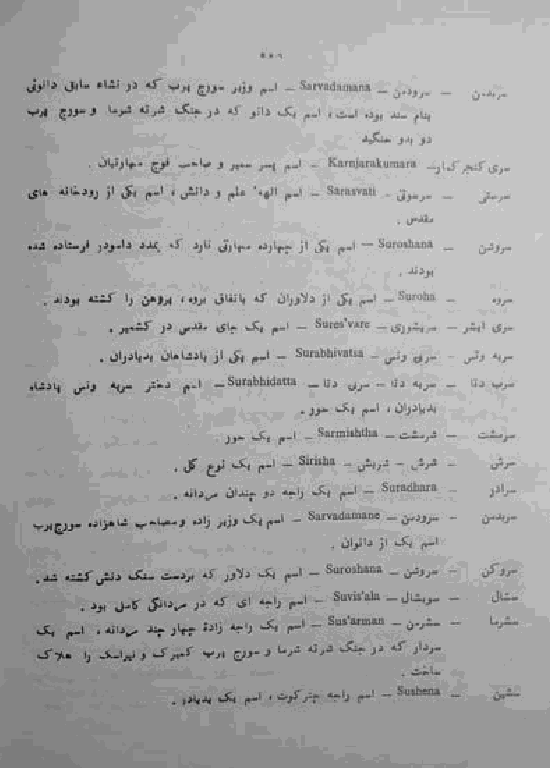 سربدمن — سرودمن — Sarvadamana — اسم وزیر سورج پرب که در نشاء سابق دانوئی
بنام سند بوده است، اسم یک دانو که در جنگ شرته شرما و سورج پرب
دو بدو
سری کنجر کمار — Karnjarakumara — اسم پسر سمیر و صاحب فوج مهارتیان.
سرستی — سرسوتی — Sarasvati — اسم الههٔ علم و دانش، اسم یکی از رودخانه های
مقدس.
سروشن — Suroshana — اسم یکی از چهارده مهارتی نارد که بمدد دامودر فرستاده شده
بودند.
سروه — Suroha — اسم یکی از دلاوران که باتفاق بروه، پروهن را کشته بودند.
سری ایشر — سریشوری — Sures'vare — اسم یک جای مقدس در کشمیر.
سربه وتس — سربی وتس — Surabhivatsa — اسم یکی از پادشاهان بدیادران.
سرب دتا — سربه دتا — سربی دتا — Surabhidatta — اسم دختر سربه وتس پادشاه
بدیادران، اسم یک حور.
سرمشت — شرمشت — Sarmishtha — اسم یک حور
سرش — شرش — شریش — Sirisha — اسم یک نوع گل.
سرادر — Suradhara — اسم یک راجه دو چندان مردانه.
سربدمن — سرودمن — Sarvadamane — اسم یک وزیر زاده و مصاحب شاهزاده سورج پرب
اسم یک از دانوان.
سروکن — سروشن — Suroshana — اسم یک دلاور که بردست سنک دنش کشته شد.
سشال — سویشال — Suvis'ala — اسم راجه ای که در مردانگی کامل بود.
سشرما — سشرمن — Sus'arman — اسم یک راجه زادهٔ چهار چند مردانه، اسم یک
سردار که در جنگ شرته شرما و سورج پرب کمبرک و نیراسک را هلاک
ساخت.
سشین — Sushena — اسم راجه چترکوت، اسم یک بدیادر.